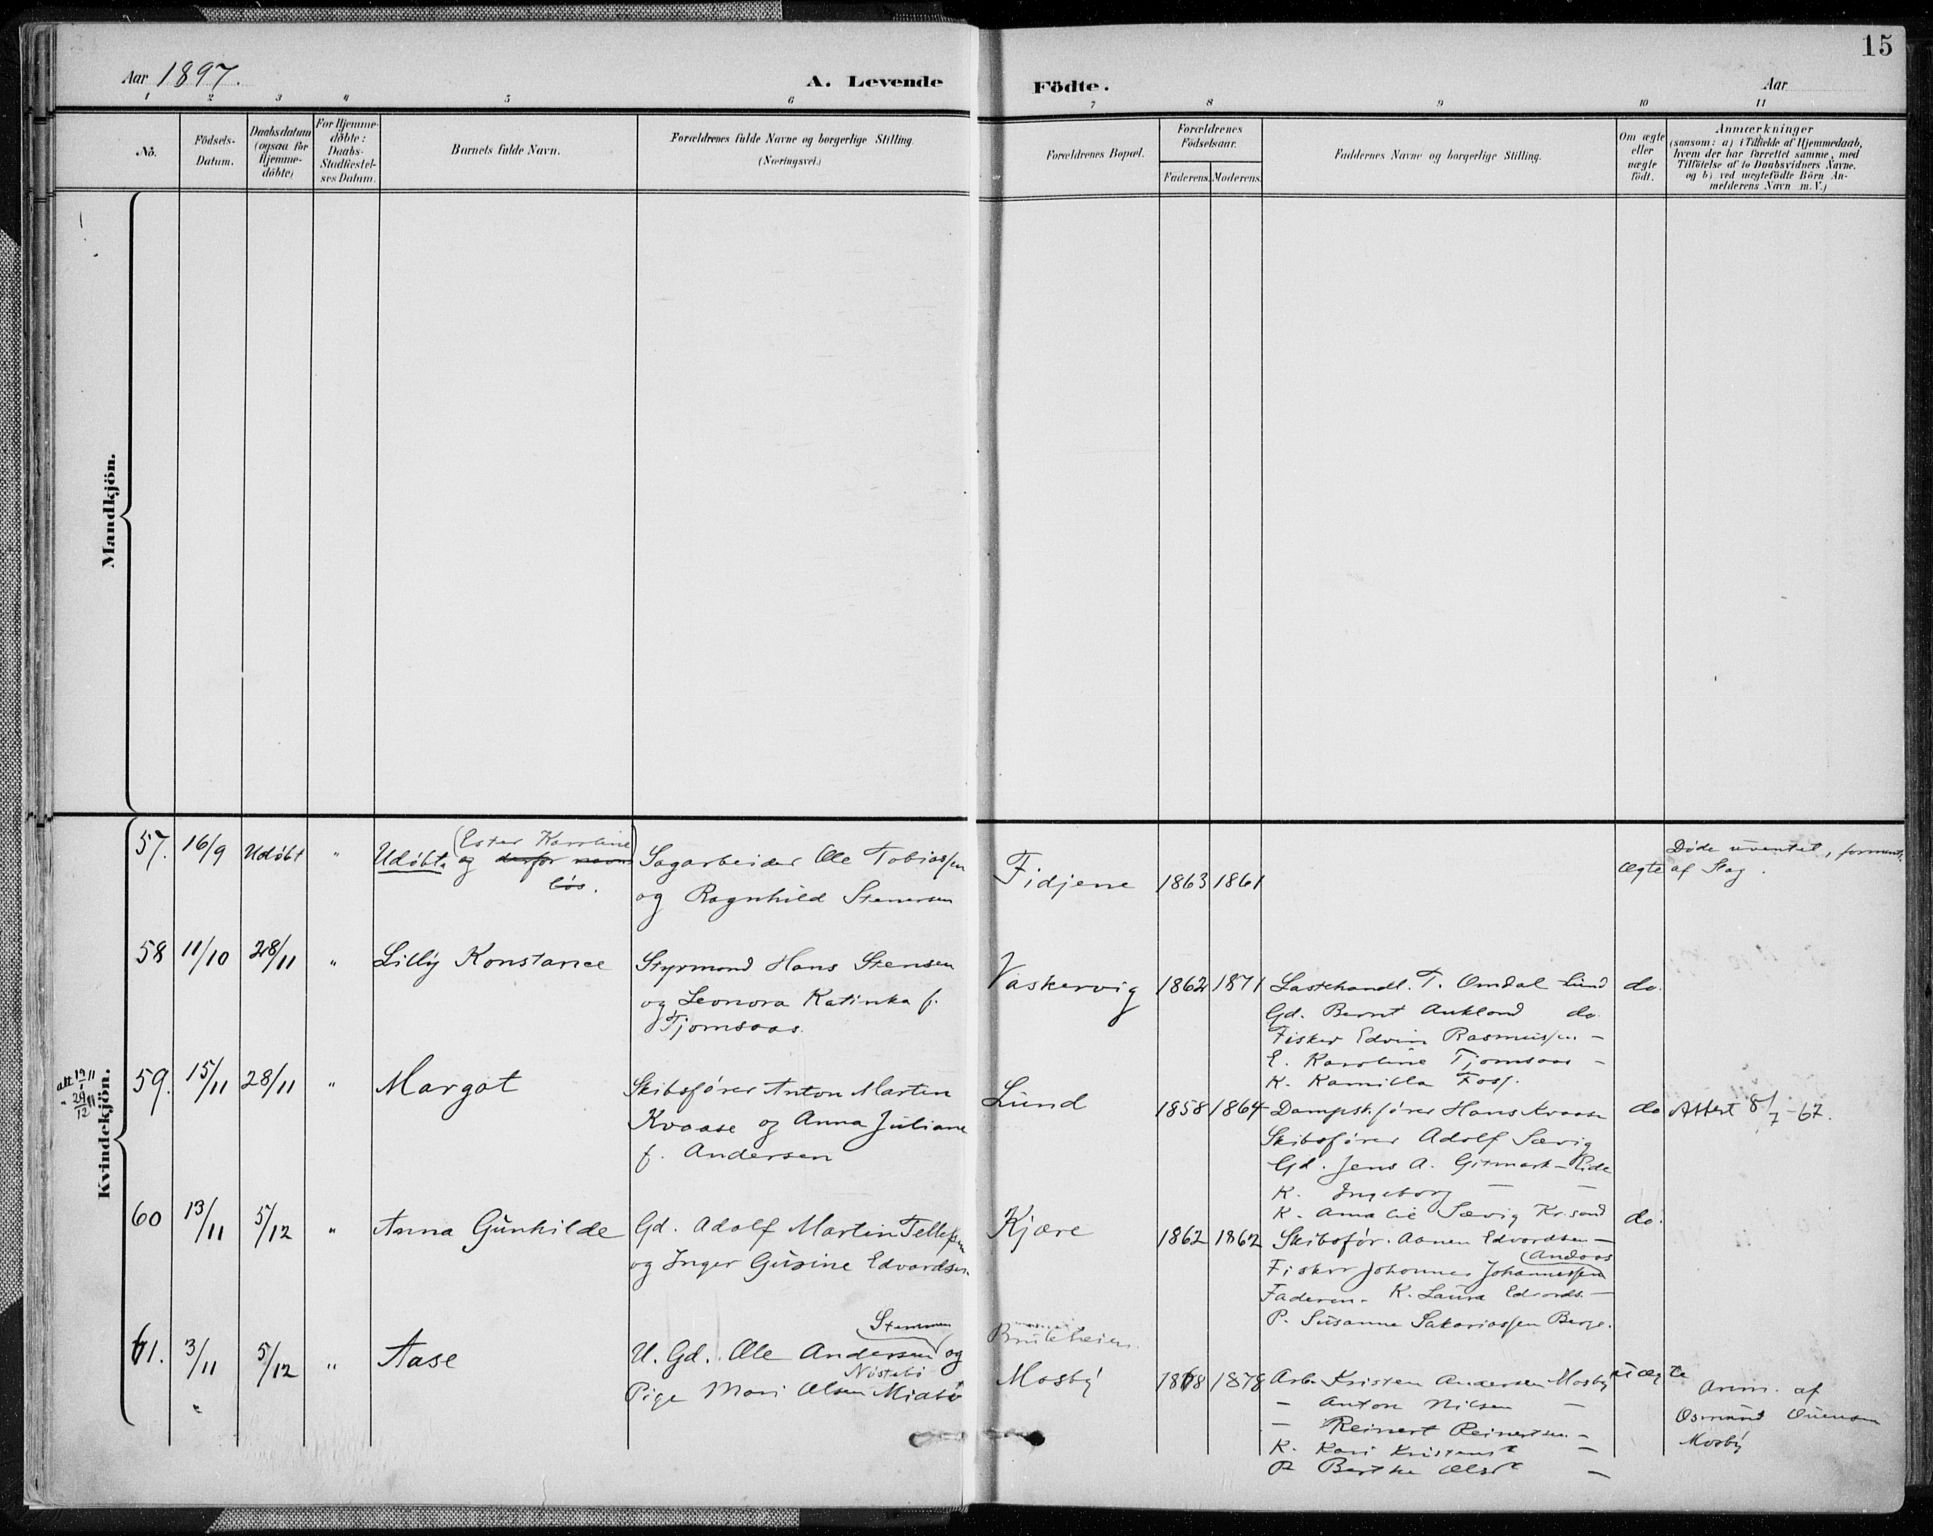 15
Aar 1897.
A. Levende
Födte.
Aar
1 2 3 4 5 6 7 8 9 10 11
No.
Födsels-
Datum.
Daabsdatum
(ogsaa for
Hjemme-
döbte)
For Hjemme-
döbte:
Daabs-
Stadfæstel-
ses Datum.
Barnets fulde Navn.
Forældrenes fulde Navne og borgerlige Stilling.
(Næringsvei.)
Forældrenes Bopæl.
Forældrenes
Födselsaar.
Faderens. Moderens.
Faddernes Navne og borgerlige Stilling.
Om ægte
eller
uægte
födt.
Anmærkninger
(saasom: a) i Tilfælde af Hjemmedaab,
hvem der har forrettet samme, med
Tilföielse af to Daabsvidners Navne.
og b) ved uægtefödte Börn An-
melderens Navn m. V.)
Mandkjön.
Kvindekjön.
57. 16/9 Udöbt " Udöbt og derfor navn
(Ester Karoline)
lös.
Sagarbeider Ole Tobiassen
og Ragnhild Stenersen
Fidjene 1863 1861
Ægte
Døde uventet, forment.
af Slag.
58 11/10 28/11 " Lilly Konstance
Styrmand Hans Stensen
og Leonora Katinka f.
Tjomsaas.
Vaskervig 1862 1871
Lastehandl. T. Omdal Lund
Gd. Bernt Aukland do
Fisker Edvin Rasmussen -
E. Karoline Tjomsaas -
K. Kamilla Foss.
do.
att 19/11
- 29/12
59. 15/11 28/11 " Margot
Skibsfører Anton Martin
Kvaase og Anna Juliane
f. Andersen
Lund 1858 1864
Dampsk.fører Hans Kvaase
Skibsfører Adolf Sævig
Gd. Jens A. Gitmark - Eide
K. Ingeborg - -
K. Amalie Sævig Kr.sand
do Attest 8/7-67.
60 13/11 5/12 " Anna Gunhilde
Gd. Adolf Martin Tellefsen
og Inger Gusine Edvardsen
Kjære 1862 1862
Skibsför. Aanen Edvardsen -
(Andaas
Fisker Johannes Johannessen
Faderen. K. Laura Edvards. -
P. Susanne Sakariassen Berge.
do.
61. 3/11 5/12 " Aase
Stemmen
U. Gd. Ole Andersen og
Nöstebö
Pige Mari Olsen Midtbö
Mosby 1868 1878
Arb. Kristen Andersen Mosby
- Anton Nilsen -
- Reinert Reinertsen -
K. Kari Kristens. -
P Berthe Ols. -
uægte
Anm. af
Osmund
Mosby